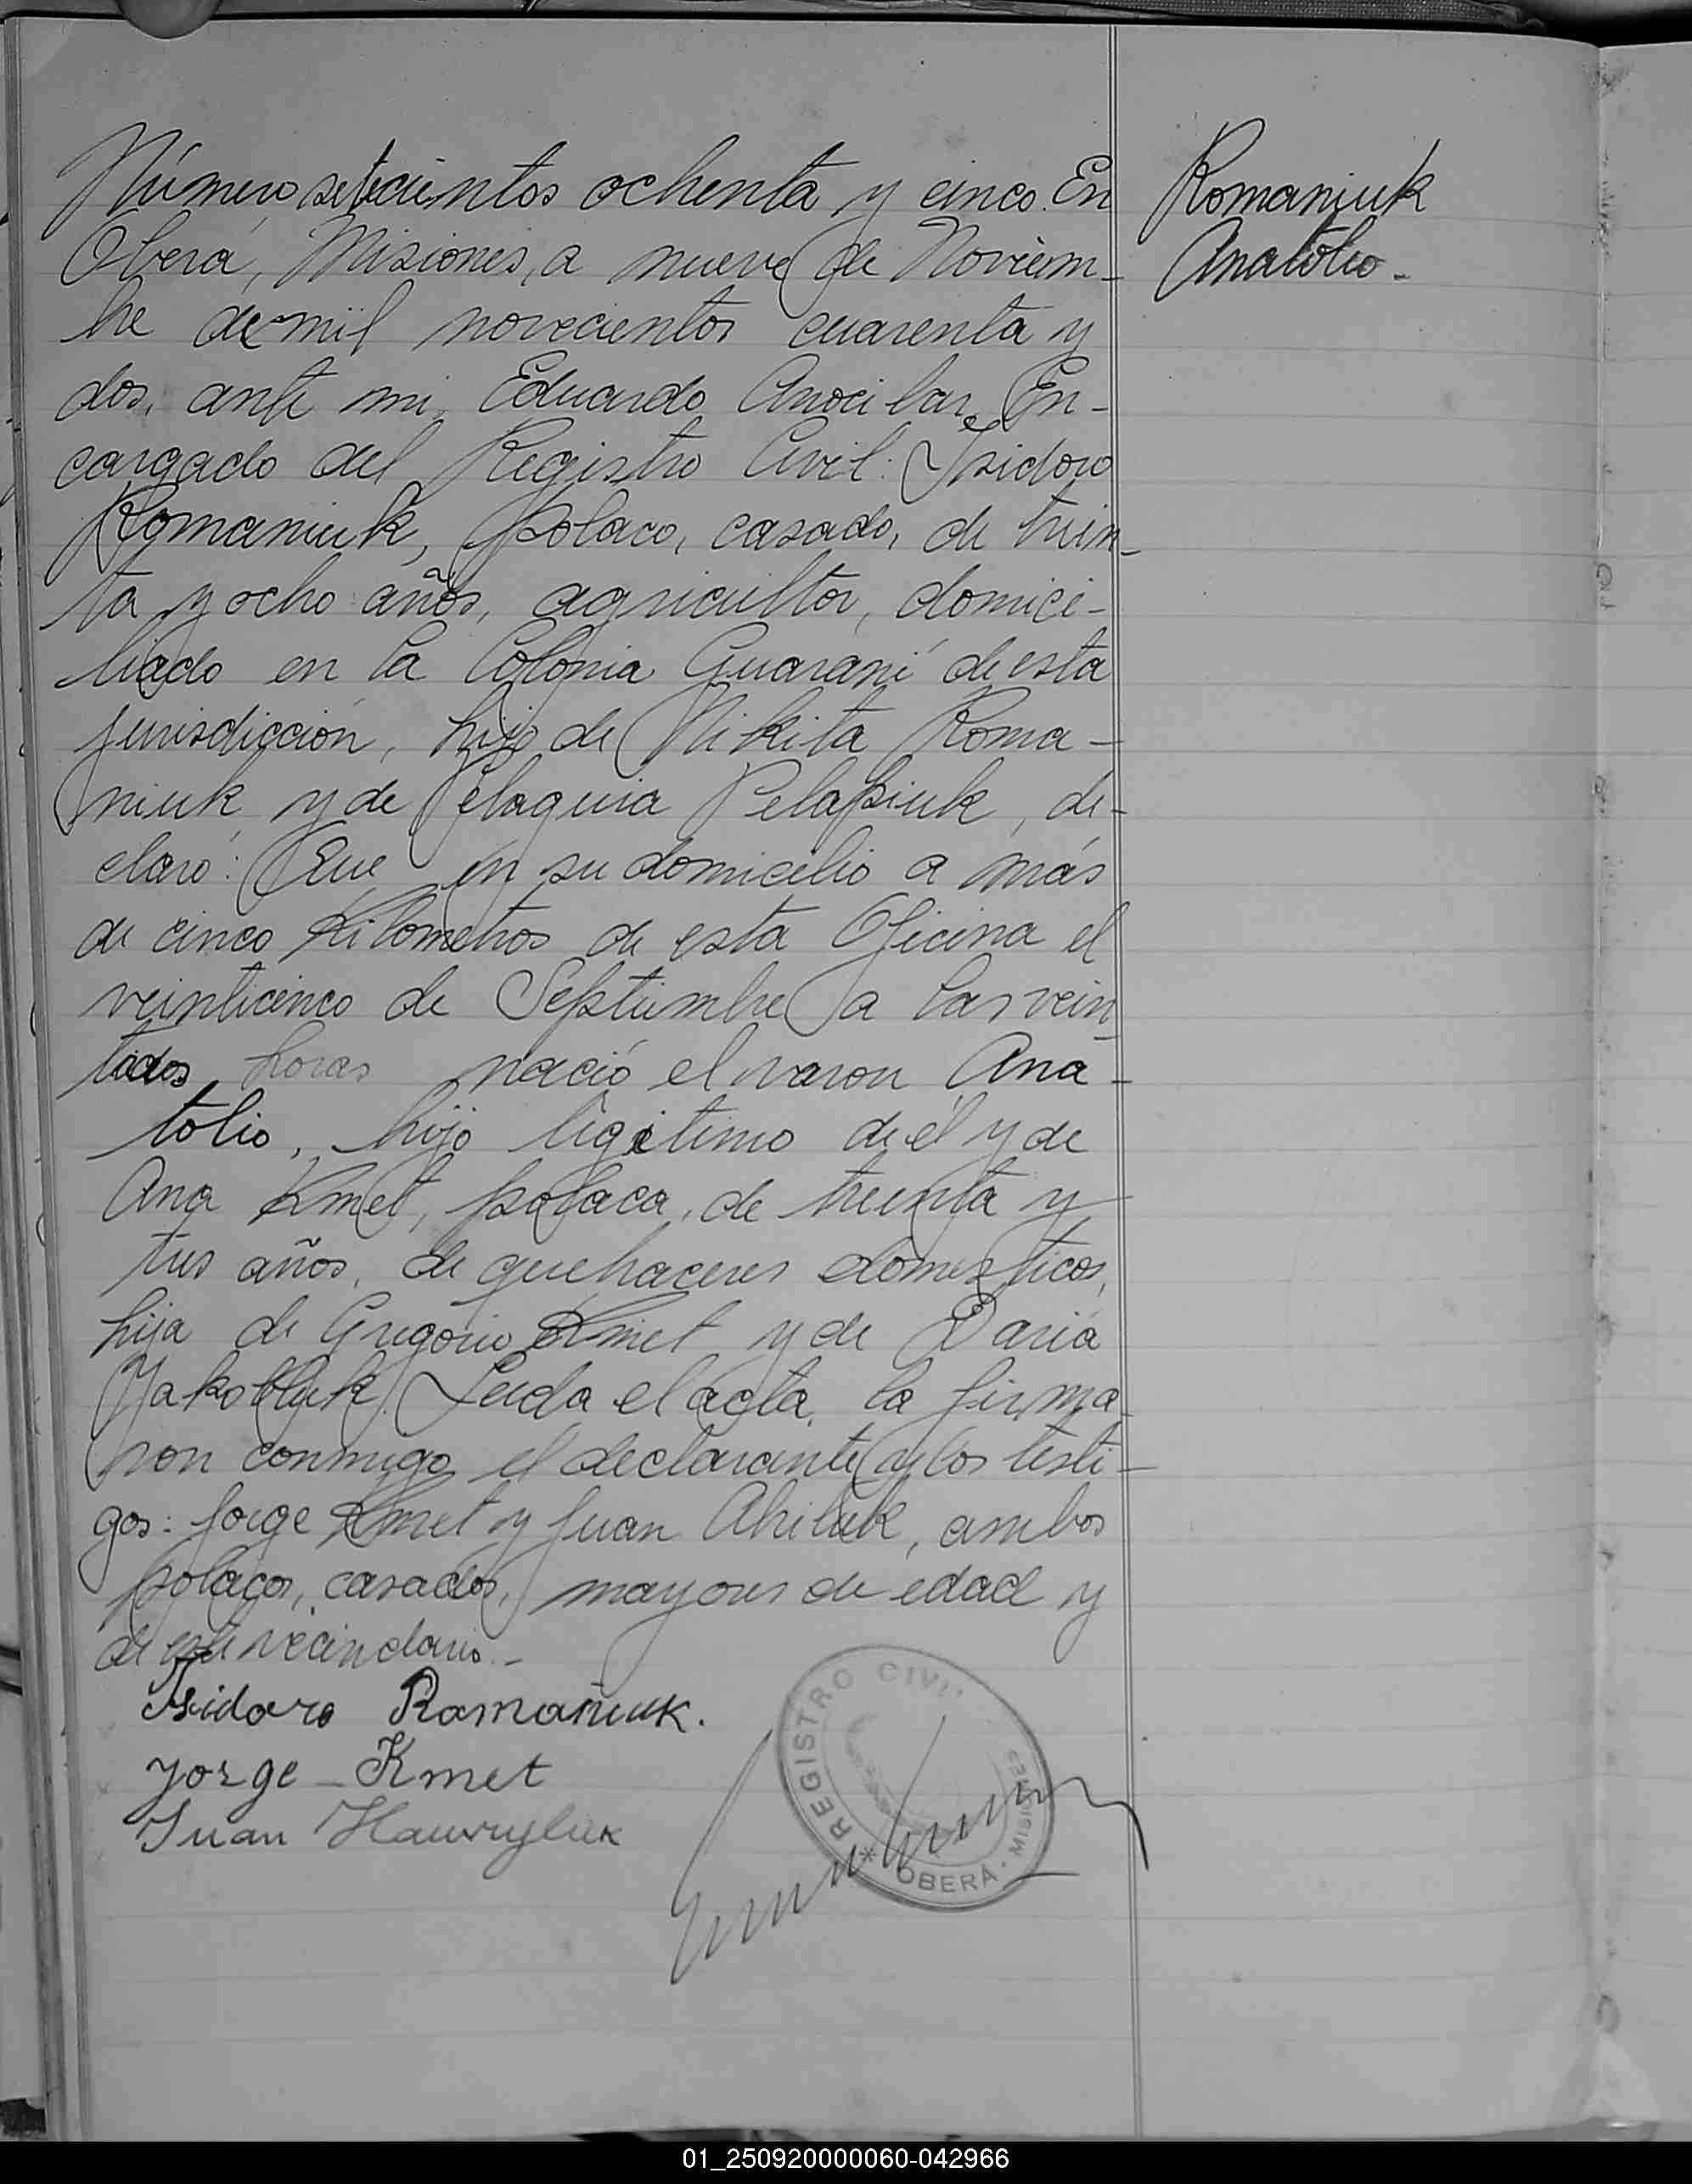 Número setecientos ochenta y cinco. En
Oberá, Misiones, a nueve de Noviem-
bre de mil novecientos cuarenta y
dos, ante mi, Eduardo En-
cargado del Registro Civil: Isidoro
Romaniuk, polaco, casado, de trein-
ta y ocho años, agricultor, domici-
liado en la Colonia Guaraní de esta
jurisdicción, hijo de Nikita Roma-
niuk y de Pelaguia de-
claró: Que en su domicilio a más
de cinco Kilometros de esta Oficina el
veinticinco de Septiembre a las vein
tidos horas nació el varon Ana-
tolio, hijo legitimo de él y de
Ana Kmet, polaca, de treinta y
tres años, de quehaceres domesticos,
hija de Gregorio Kmet y de Daria
Leida el acta, la firma
ron conmigo el declarante y los testi-
gos: Jorge Kmet y Juan ambos
polacos, casados, mayores de edad y
de este vecindario.-
Isidoro Romaniuk.
Jorge - Kmet
Juan Hawryluk
REGISTRO CIVIL
* OBERÁ - MISIONES
Romaniuk
Anatolio.-
01_250920000060-042966